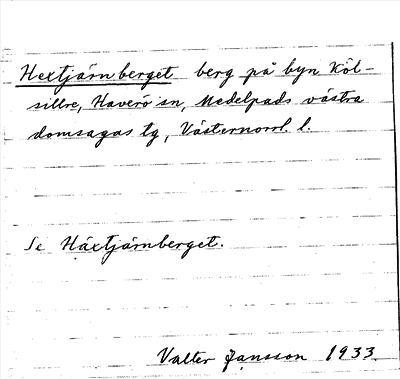 Hextjärnberget berg på byn Köl-
sillre, Haverö sn, Medelpads västra
domsagas tg, Västernorrl. l.
Se Häxtjärnberget.
Valter Jansson 1933